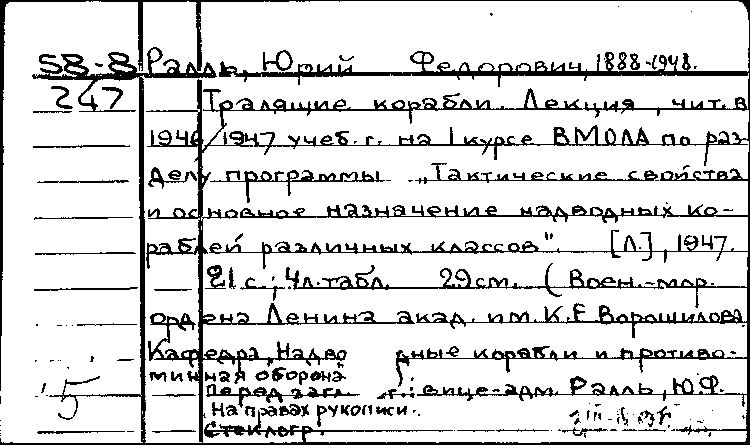 58-8 Ралль, Юрий Федорович, 1888-1948.
247 Тралящие корабли. Лекция, чит. в
1946/1947 учеб. г. на I курсе ВМОЛА по раз-
делу программы „Тактические свойства
и основное назначение надводных ко-
раблей различных классов". [Л.], 1947.
21 с.; 4 л. табл. 29 см. (Воен.-мор.
ордена Ленина акад. им. К.Е Ворошилова
Кафедра „Надводные корабли и противо-
минная оборона"
Перед загл. : вице-адм. Ралль, Ю.Ф.
На правах рукописи.
Стеклогр.
5